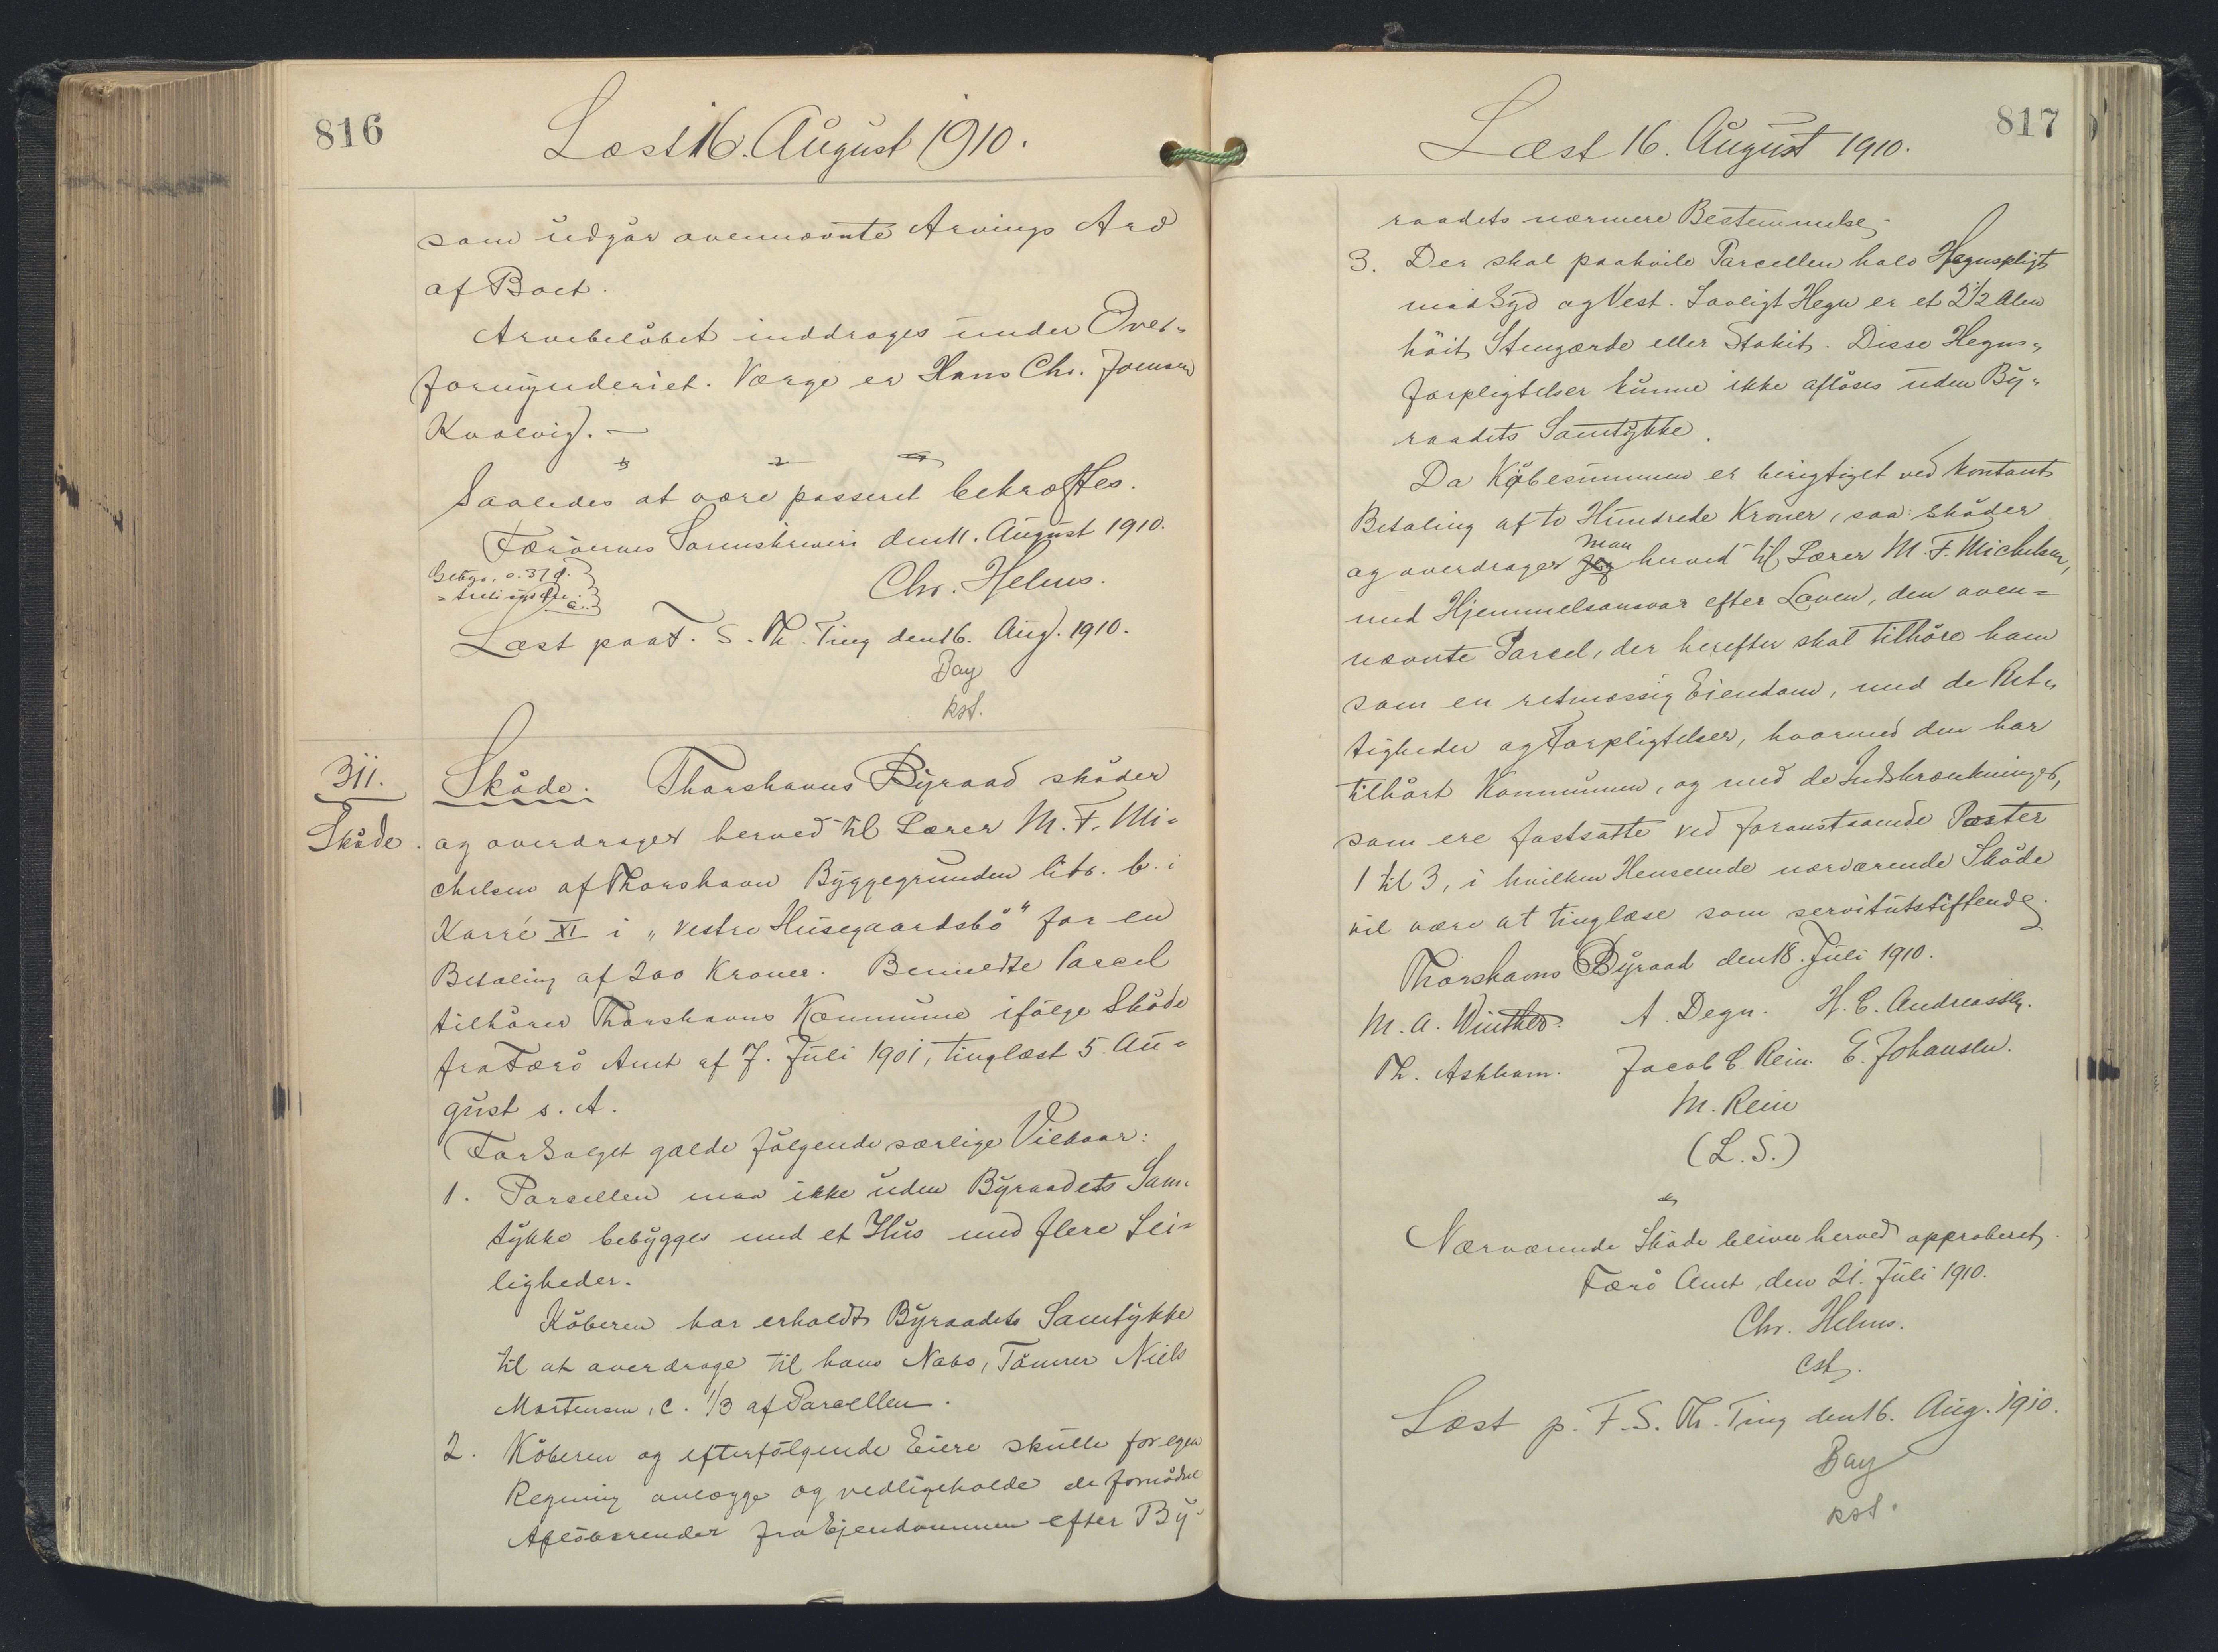 816
Læst 16. August 1910.
som udgør ovennævnte Arvings Arv
af Boet.
Arvebeløbet inddrages under Over-
formynderiet. Værge er Hans Chr. Joensen
Kvalvig. —
Saaledes at være passeret bekræftes.
Færøernes Sorenskriveri den 11. August 1910.
Chr. Helms.
Læst paa F. S. Th. Ting den 16. Aug. 1910.
Bay
kst.
311.
Skøde.
Skøde. Thorshavns Byraad skøder
og overdrager herved til Lærer M. F. Mi-
chelsen af Thorshavn Byggegrunden litr. b. i
Karré XI i „Vestre Husegaardsbø" for en
Betaling af 200 Kroner. Bemeldte Parcel
tilhører Thorshavns Kommune ifølge Skøde
fra Færø Amt af 7. Juli 1901, tinglæst 5. Au-
gust s. A.
For Salget gælde følgende særlige Vilkaar:
1. Parcellen maa ikke uden Byraadets Sam-
tykke bebygges med et Hus med flere Lei-
ligheder.
Køberen har erholdt Byraadets Samtykke
til at overdrage til hans Nabo, Tømrer Niels
Mortensen, c. 1/3 af Parcellen.
2. Køberen og efterfølgende Eiere skulle for egen
Regning anlægge og vedligeholde de fornødne
Afløbsrender fra Ejendommen efter By-
817
Læst 16. August 1910.
raadets nærmere Bestemmelse.
3. Der skal paahvile Parcellen halv Hegnspligt
mod Syd og Vest. Lovligt Hegn er et 2 1/2 Alen
høit Stengærde eller Stakit. Disse Hegns-
forpligtelser kunne ikke afløses uden By-
raadets Samtykke.
Da Købesummen er berigtiget ved kontant
Betaling af to Hundrede Kroner, saa skøder
og overdrager man herved til Lærer M. F. Michelsen,
med Hjemmelsansvar efter Loven, den oven-
nævnte Parcel, der herefter skal tilhøre ham
som en retmæssig Eiendom, med de Ret-
tigheder og Forpligtelser, hvormed den har
tilhørt Kommunen, og med de Indskrænkninger,
som ere fastsatte ved foranstaaende Poster
1 til 3, i hvilken Henseende nærværende Skøde
vil være at tinglæse som servitutstiftende.
Thorshavns Byraad den 18. Juli 1910.
M. A. Winther. A. Degn. H. C. Andreassen.
Th. Askham. Jacob C. Rein. E. Johansen.
M. Rein
(L. S.)
Nærværende Skøde bliver herved approberet.
Færø Amt, den 21. Juli 1910.
Chr. Helms.
cst.
Læst p. F. S. Th. Ting den 16. Aug. 1910.
Bay
kst.